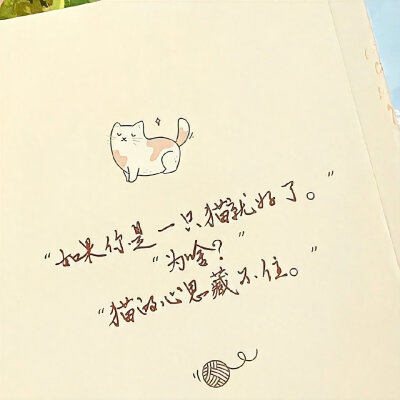 “如果你是一只猫就好了。”
“为啥?”
“猫的心思藏不住。”